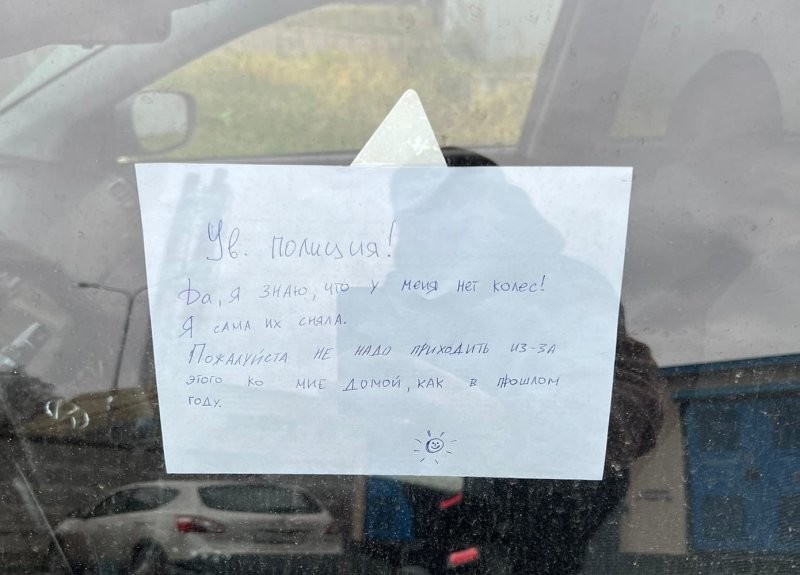 Ув. полиция!
Да, я знаю, что у меня нет колес!
Я сама их сняла.
Пожалуйста не надо приходить из-за
этого ко мне домой, как в прошлом
году.